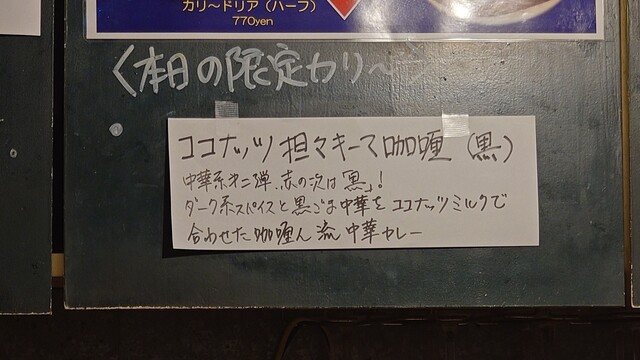 カリ〜ドリア（ハーフ）
770yen
〈本日の限定カリ〜〉
ココナッツ担々キーマ咖喱（黒）
中華系第二弾、赤の次は「黒」！
ダーク系スパイスと黒ごま中華をココナッツミルクで
合わせた咖喱ん流中華カレー